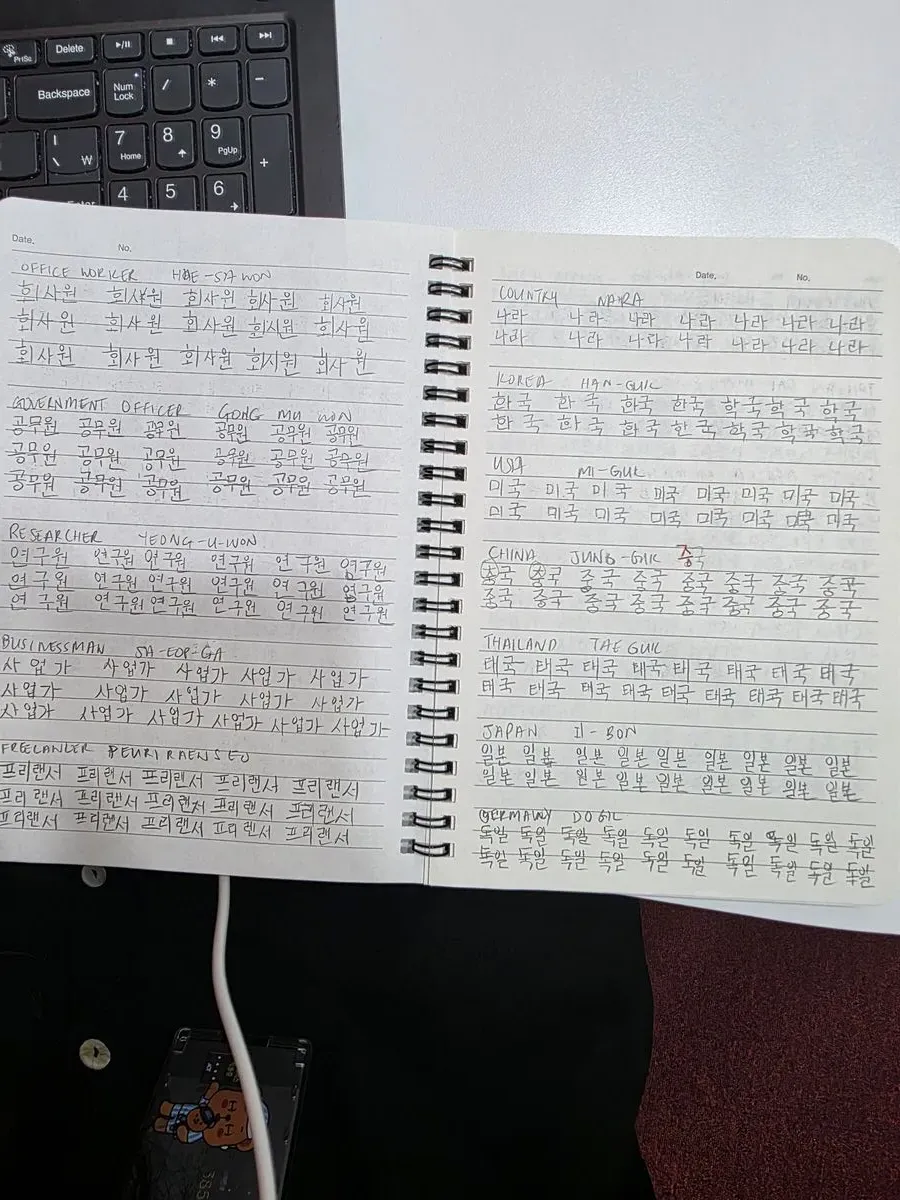 PrtSc Delete ▶/II ■ I◀◀ ▶▶I
Backspace Num Lock / * -
| \ ₩ 7 Home 8 9 PgUp +
Enter 4 5 6
Date. No.
OFFICE WORKER HAE-SA WON
회사원 회사원 회사원 회사원 회사원
회사원 회사원 회사원 회사원 회사원
회사원 회사원 회사원 회시원 회사원
GOVERNMENT OFFICER GONG MU WON
공무원 공무원 공무원 공무원 공무원 공무원
공무원 공무원 공무원 공무원 공무원 공무원
공무원 공무원 공무원 공무원 공무원 공무원
RESEARCHER YEONG-U-WON
연구원 연구원 연구원 연구원 연구원 연구원
연구원 연구원 연구원 연구원 연구원 연구원
연구원 연구원 연구원 연구원 연구원 연구원
BUSINESSMAN SA-EOP-GA
사업가 사업가 사업가 사업가 사업가
사업가 사업가 사업가 사업가 사업가
사업가 사업가 사업가 사업가 사업가 사업가
FREELANCER PEURIRAENSEO
프리랜서 프리랜서 프리랜서 프리랜서 프리랜서
프리랜서 프리랜서 프리랜서 프리랜서 프리랜서
프리랜서 프리랜서 프리랜서 프리랜서 프리랜서
Date. No.
COUNTRY NARA
나라 나라 나라 나라 나라 나라 나라
나라 나라 나다 나라 나라 나라 나라
KOREA HAN-GUK
한국 한국 한국 한국 학국 학국 한국
한국 한국 한국 한국 학국 학국 학국
USA MI-GUK
미국 미국 미국 미국 미국 미국 미국 미국
미국 미국 미국 미국 미국 미국 미국 미국
CHINA JUNG-GUK 중국
중국 중국 중국 중국 중국 중국 중국 중국
중국 중국 중국 중국 중국 중국 중국 중국
THAILAND TAE GUK
태국 태국 태국 태국 태국 태국 태국 태국
태국 태국 태국 태국 태국 태국 태국 태국 태국
JAPAN Il-BON
일본 일본 일본 일본 일본 일본 일본 일본 일본
일본 일본 일본 일본 일본 일본 일본 일본 일본
GERMANY DOGIL
독일 독일 독일 독일 독일 독일 독일 독일 독일 독일
독일 독일 독일 독일 독일 독일 독일 독일 독일 독일
385